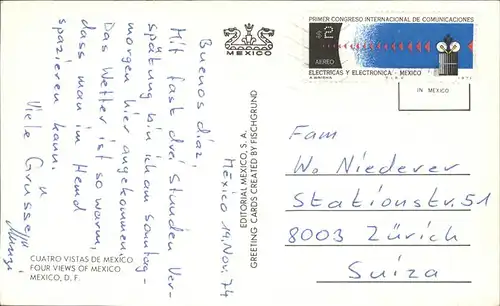 Mexico 19. Nov. 74
Buenos diaz,
Mit fast drei Stunden Ver-
spätung bin ich am Sonntag-
morgen hier angekommen.
Das Wetter ist so warm,
dass man im Hemd
spazieren kann.
Viele Grüsse
CUATRO VISTAS DE MEXICO
FOUR VIEWS OF MEXICO
MEXICO, D. F.
MEXICO
EDITORIAL MEXICO, S. A.
GREETING CARDS CREATED BY FISCHGRUND
PRIMER CONGRESO INTERNACIONAL DE COMUNICACIONES
$2
AEREO
ELECTRICAS Y ELECTRONICA - MEXICO
IN MEXICO
Fam
W. Niederer
Stationstr. 51
8003 Zürich
Suiza